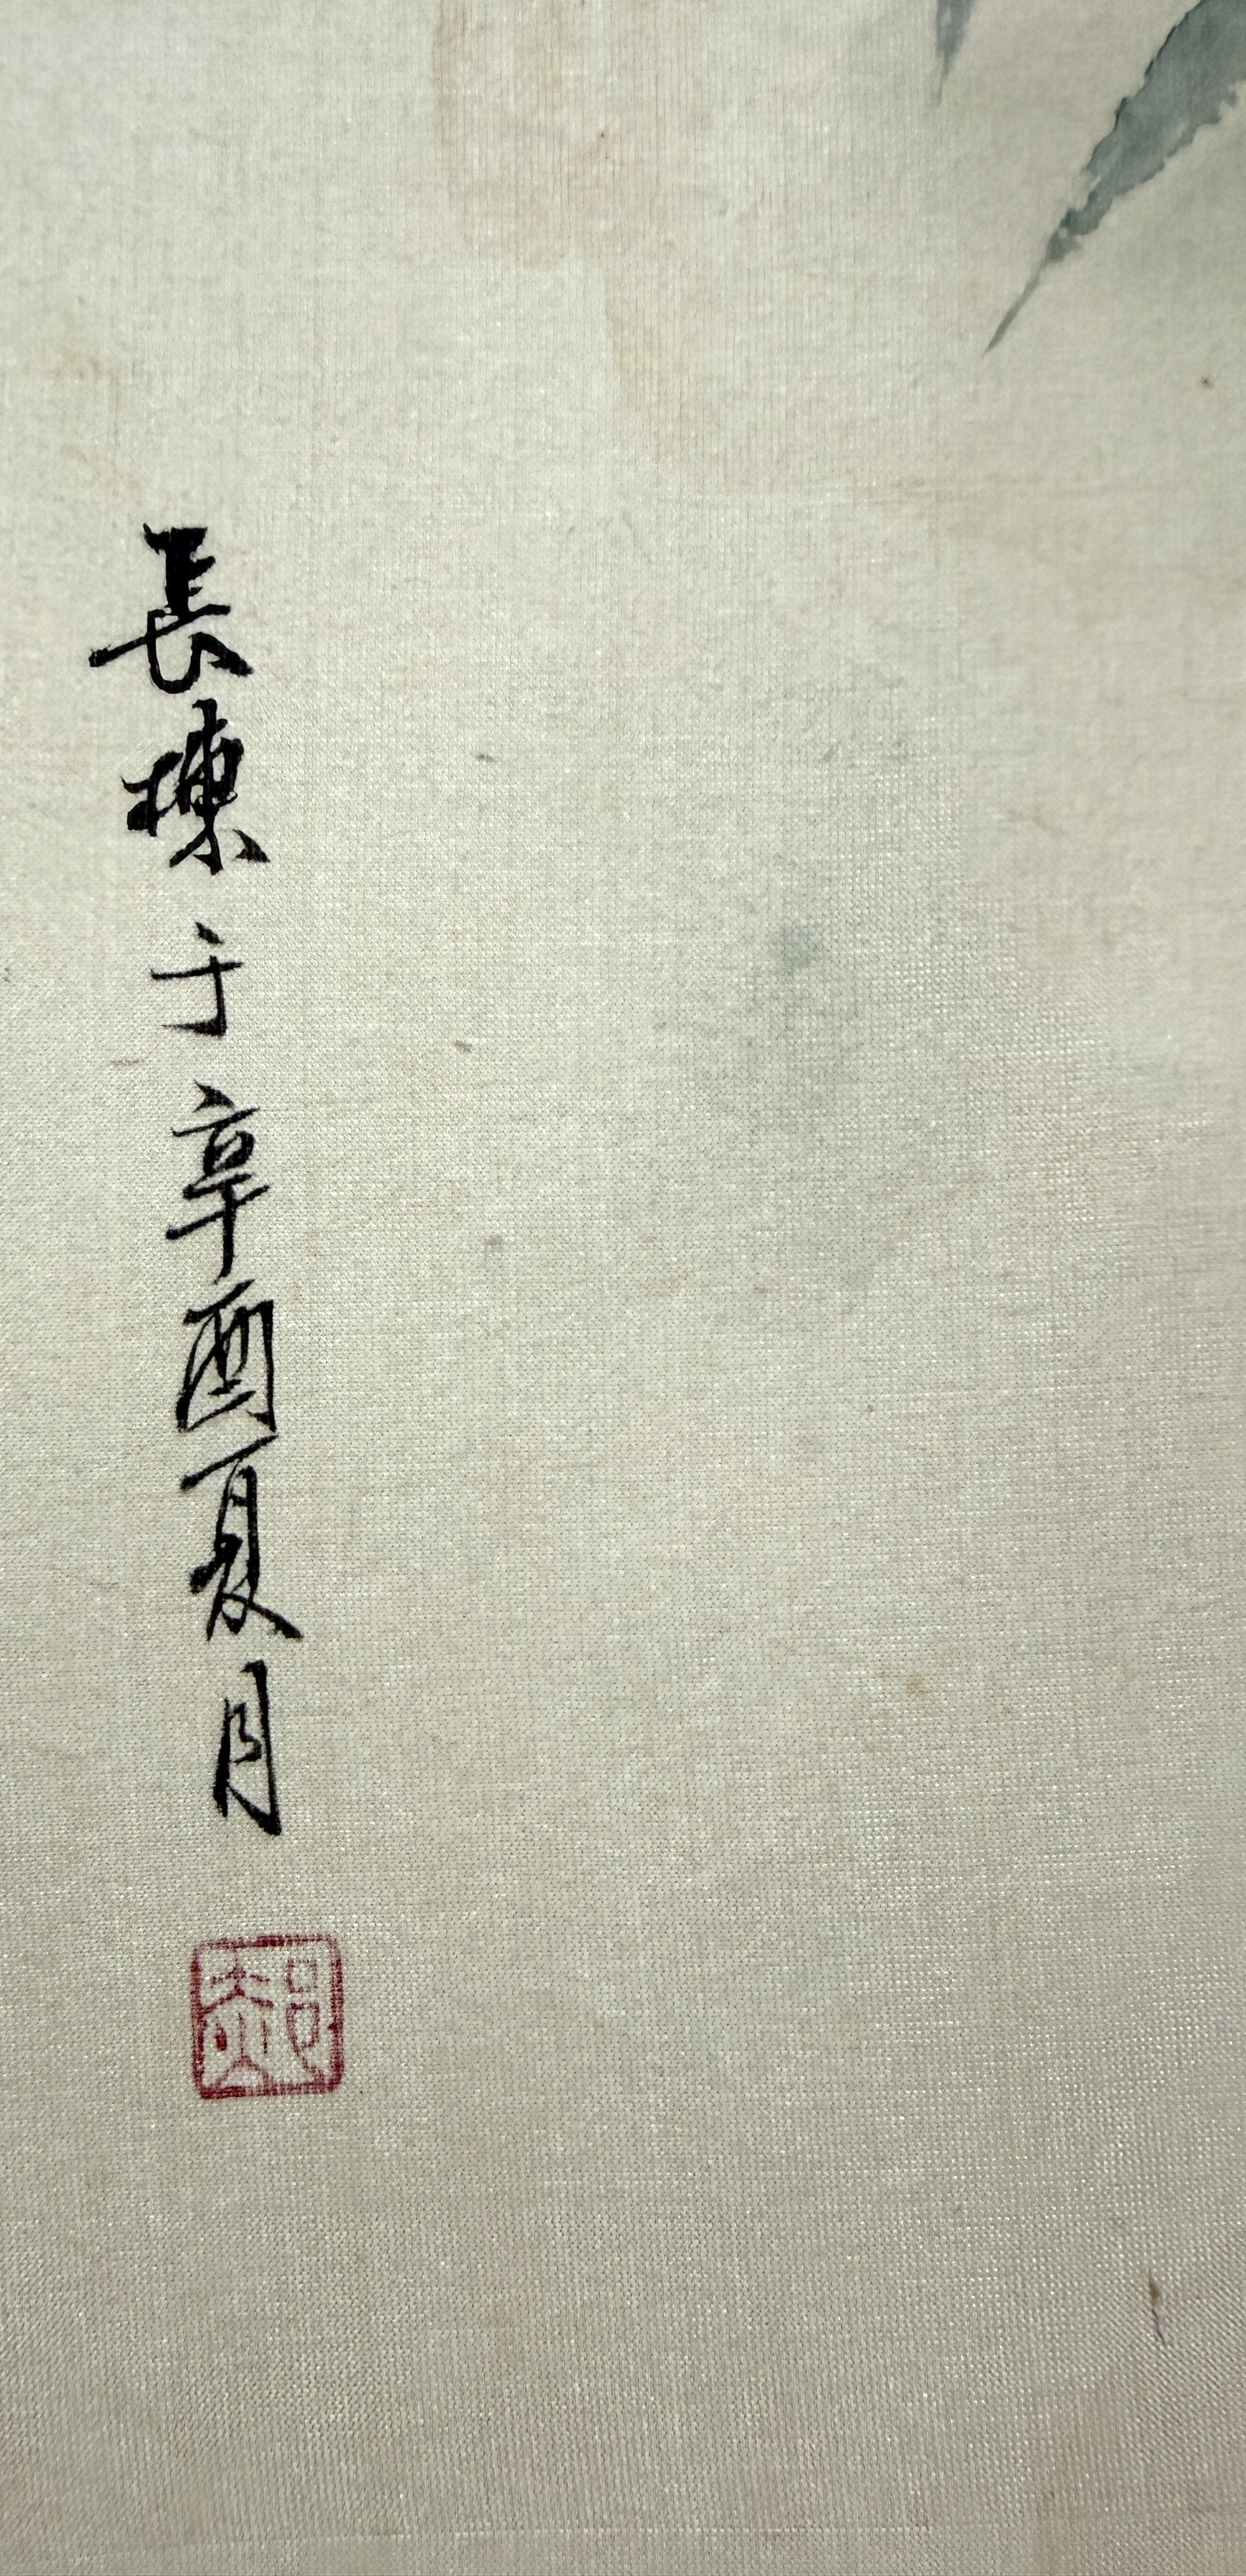 長棟于辛酉夏月